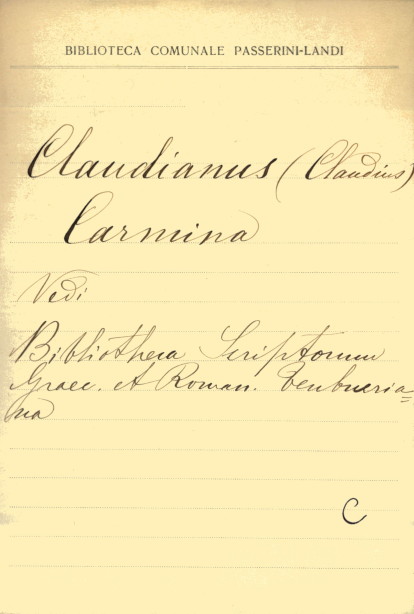 BIBLIOTECA COMUNALE PASSERINI-LANDI
Claudianus (Claudius)
Carmina
Vedi
Bibliotheca Scriptorum
Graec. et Roman. Teubneria=
na
C